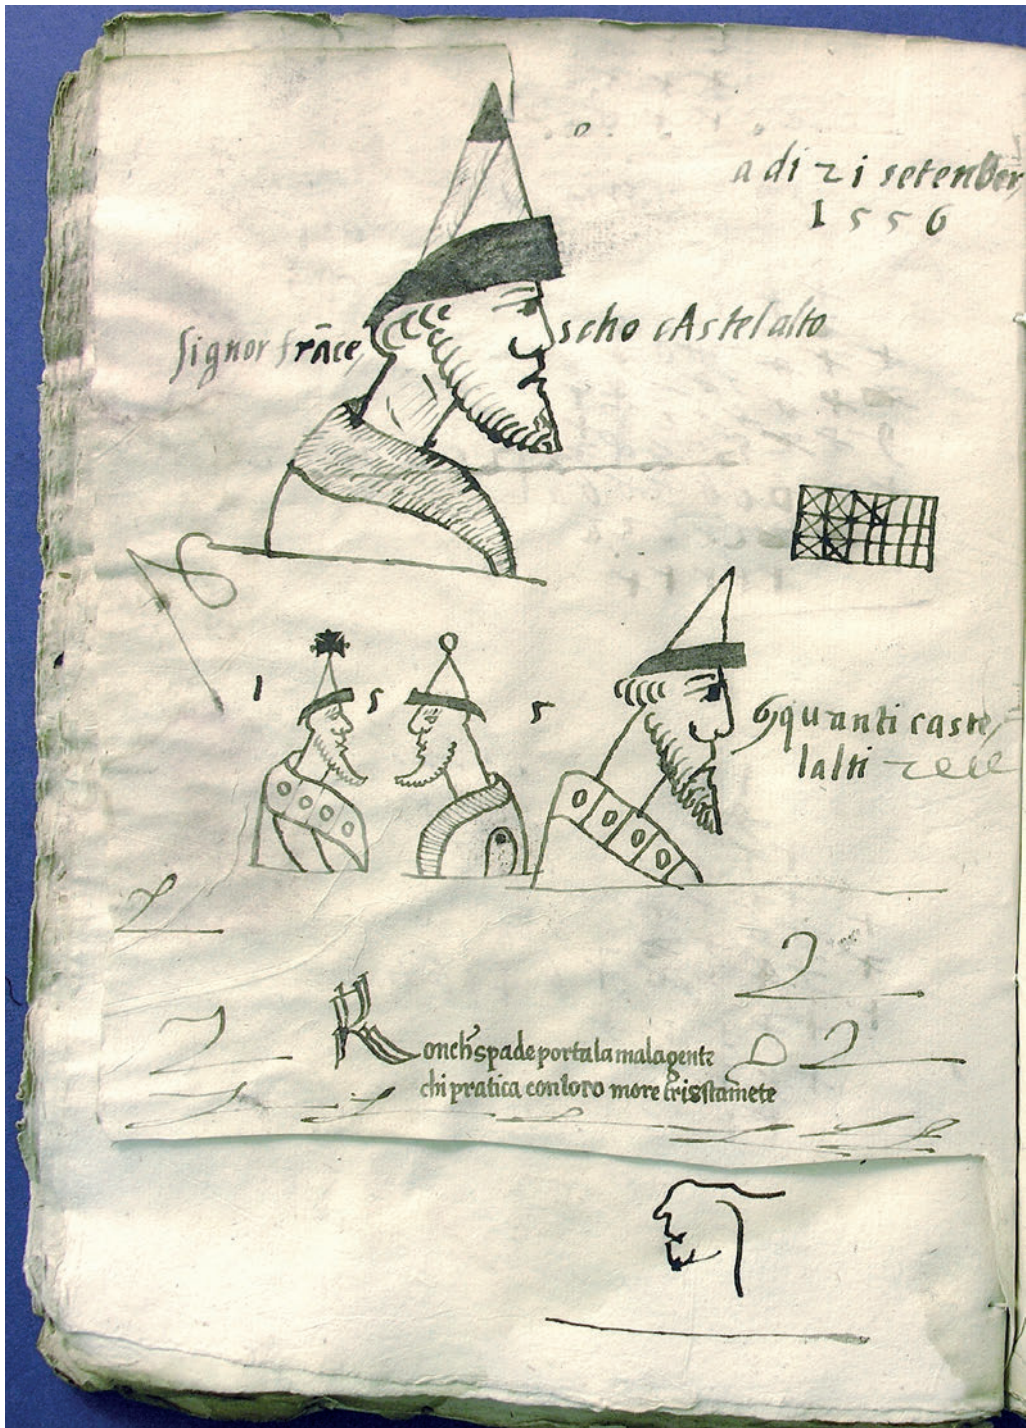 a di 21 setenber
1556
signor frāce scho cAstelalto
1 5 5 6 quanti caste
lalti
2
2
2 2
Ronch̄ spade porta la mala gente
chi pratica con loro more trisstam̄ete